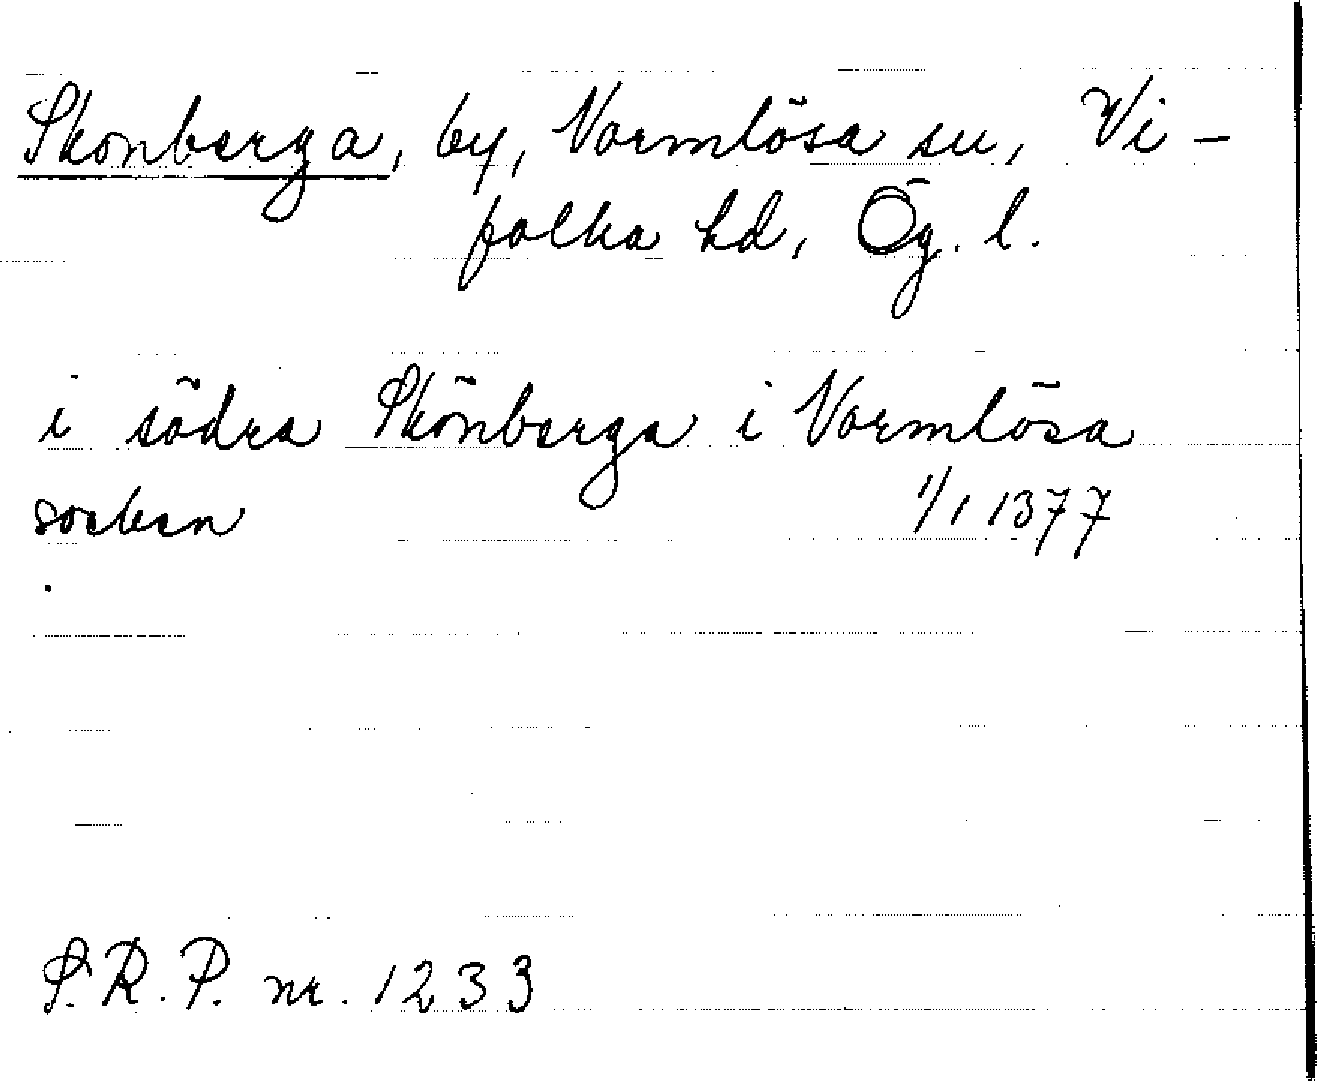 Skonberga, by, Normlösa sn, Vi-
folka hd, Ög. l.
i södra Skönberga i Normlösa
socken 1/1 1377
S.R.P. nr. 1233